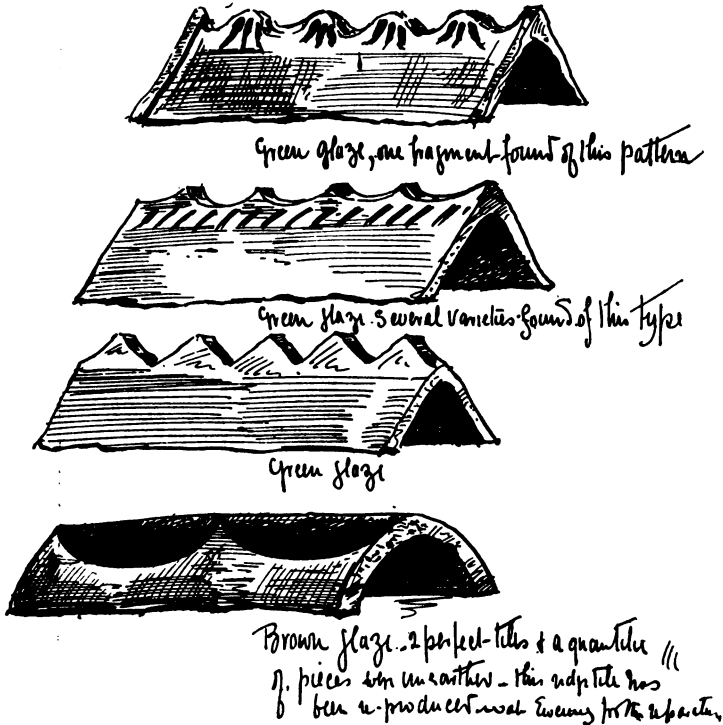 Green glaze, one fragment found of this pattern
Green glaze. Several varieties found of this type
Green glaze
Brown glaze. 2 perfect tiles & a quantitie
of pieces were unearthed – this ridge tile has
been re-produced for the reparation